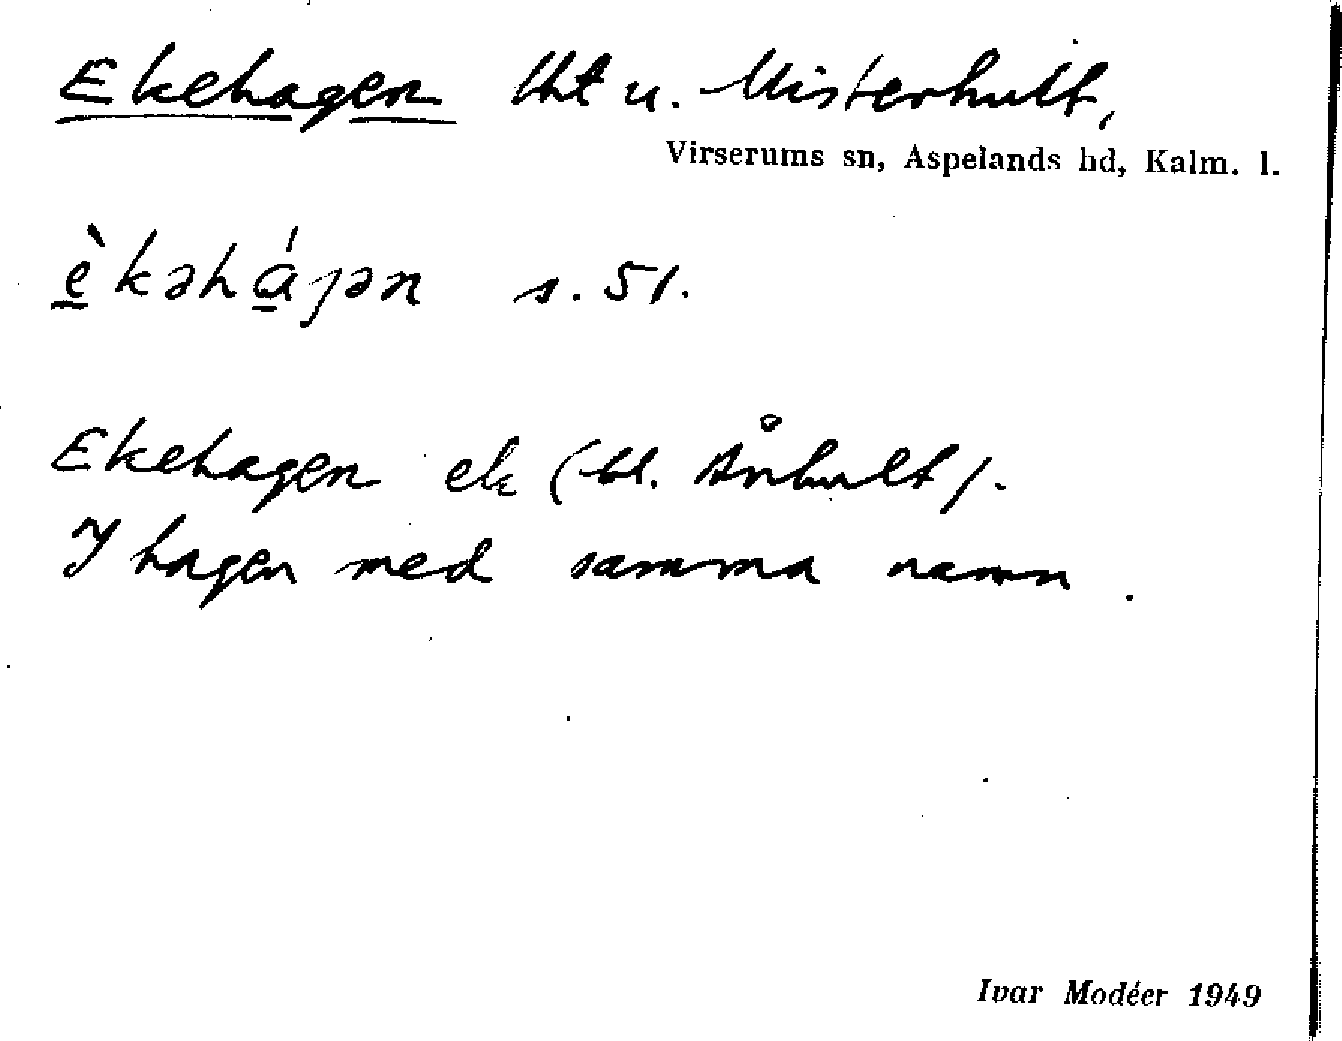 Ekehagen lht u. Misterhult,
Virserums sn, Aspelands hd, Kalm. l.
è̱kəhá̱ɟən s. 51.
Ekehagen ek (bl. Ånhult).
I hagen med samma namn.
Ivar Modéer 1949